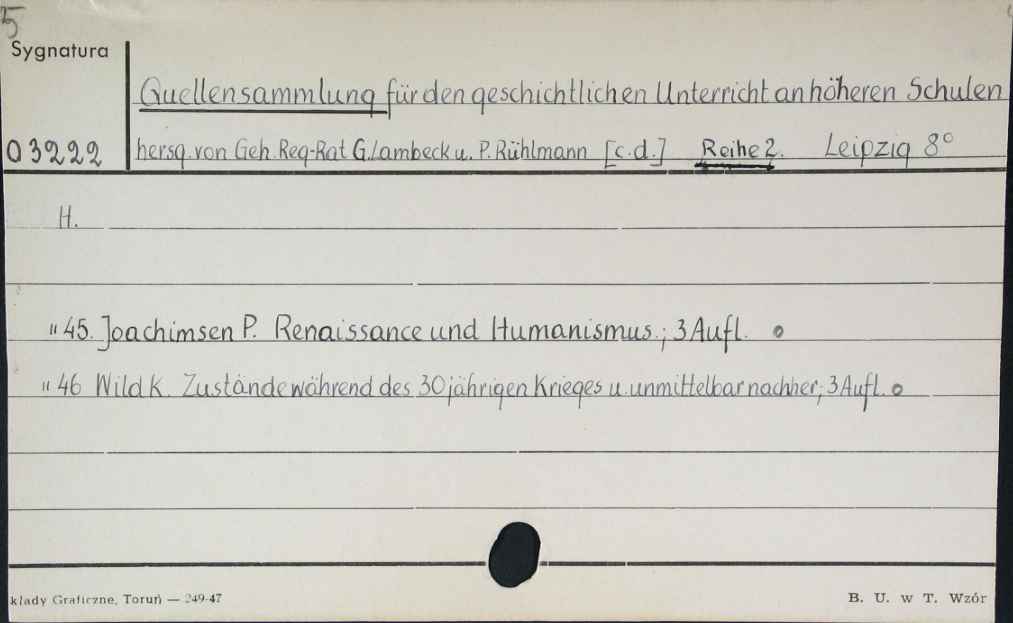 5
Sygnatura
Quellensammlung für den geschichtlichen Unterricht an höheren Schulen
03222 hersg. von Geh. Reg-Rat G. Lambeck u. P. Rühlmann [c.d.] Reihe 2. Leipzig 8°
H.
" 45. Joachimsen P. Renaissance und Humanismus.; 3 Aufl.
" 46 Wild K. Zustände während des 30 jährigen Krieges u. unmittelbar nachher; 3 Aufl.
kłady Graficzne, Toruń — 249-47
B. U. w T. Wzór